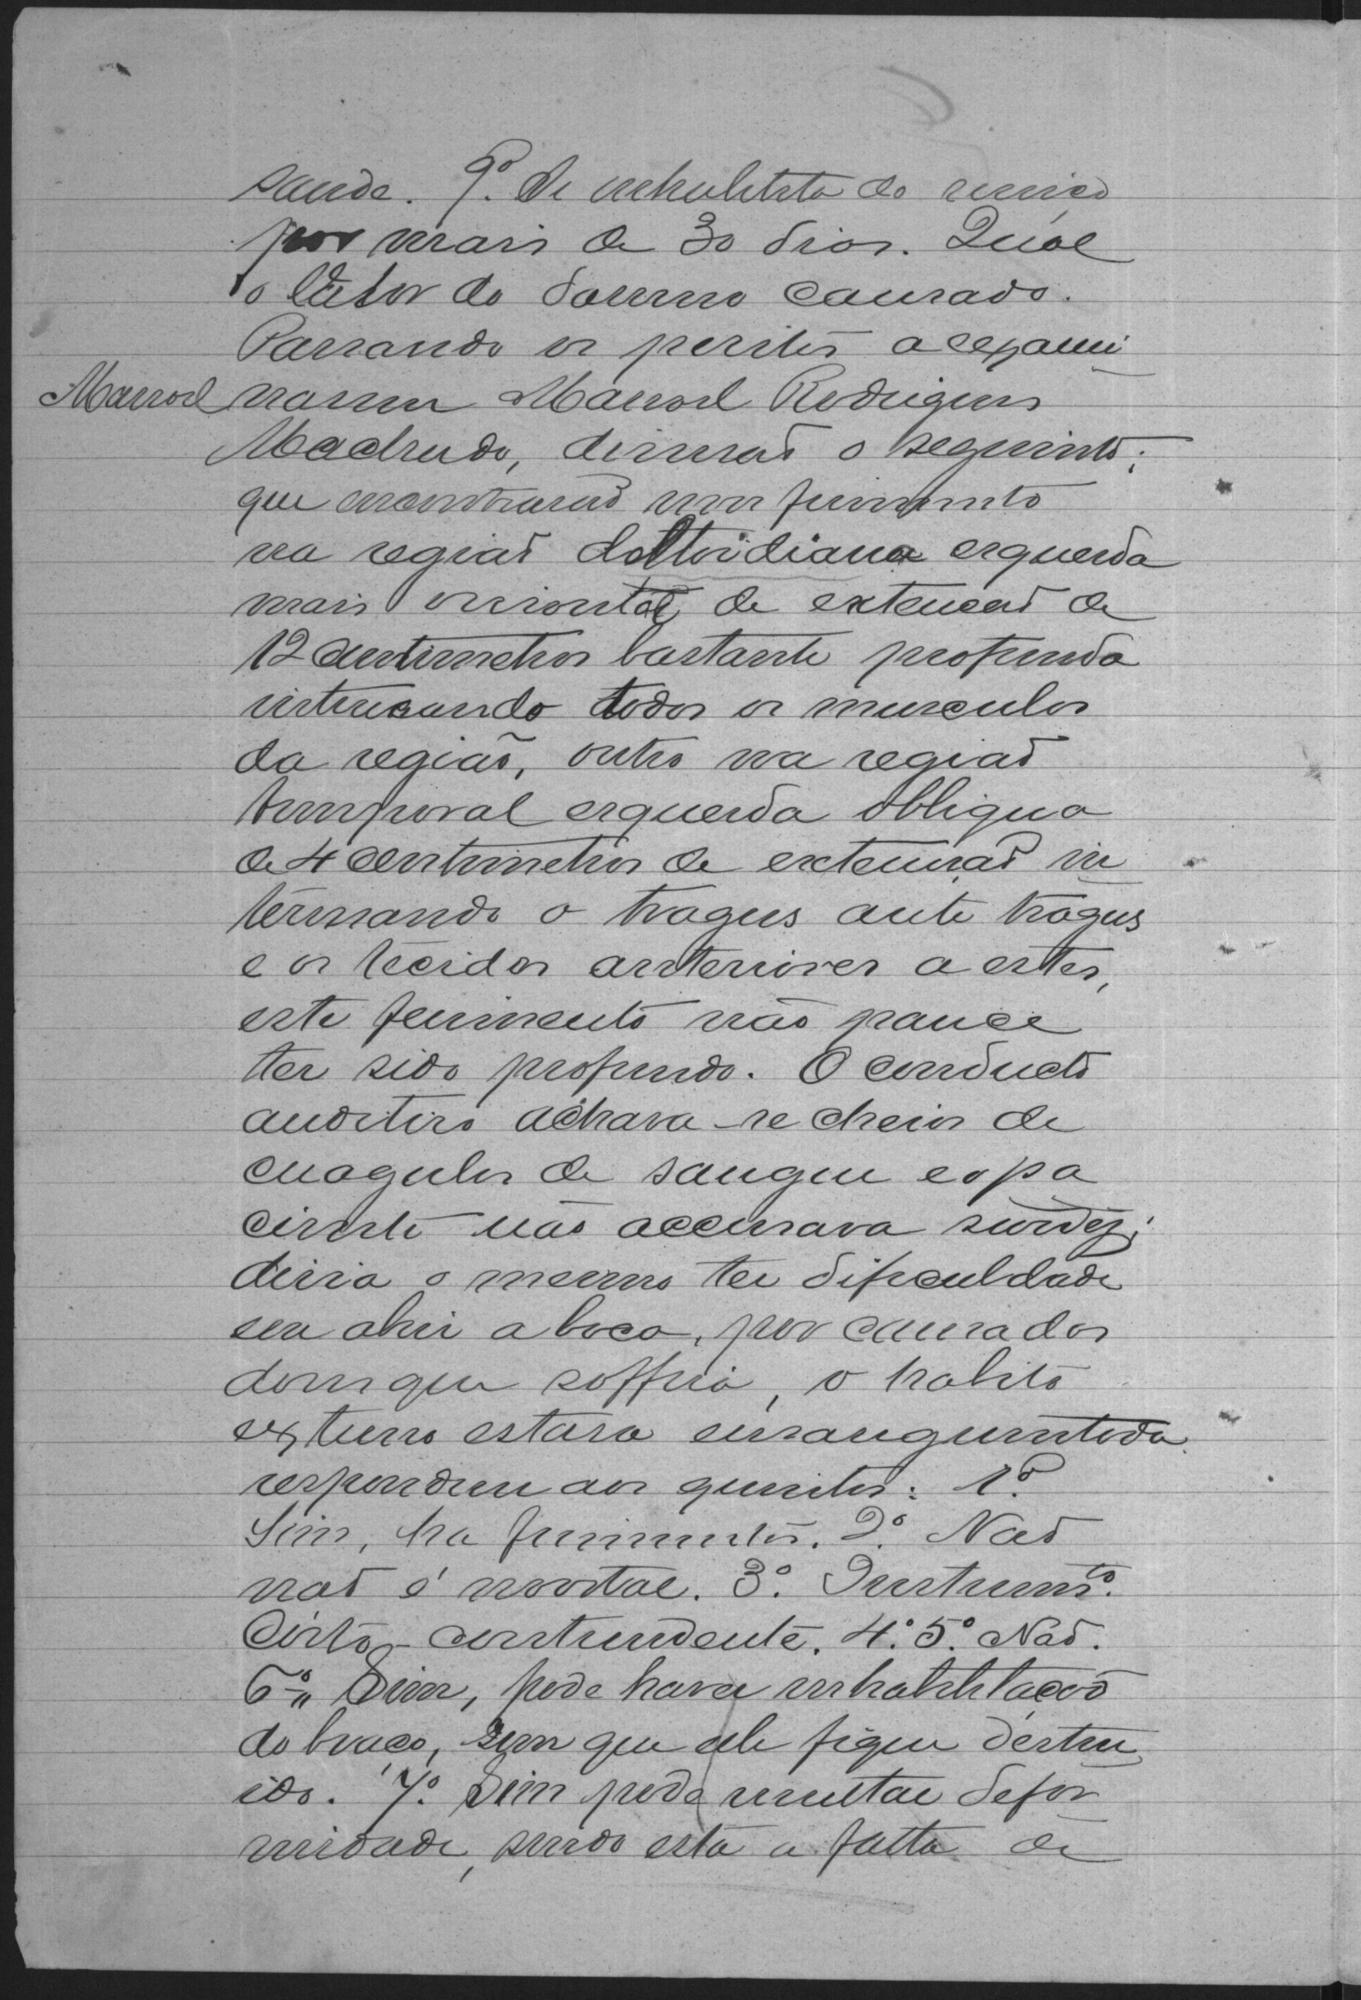 saude. 9º. Se inhabilita do serviço
por mais de 30 dias. Qual
o valor do damno causado.
Passando os peritos a exami
Manoel narem Manoel Rodrigues
Machudo, disserão o seguinte;
que encontrarão um ferimento
na região deltoidiana esquerda
mais orisontal de extenção de
12 centimetros bastante profunda
interessando todos os musculos
da região, outro na região
temporal esquerda obliqua
de 4 centimetros de extensão in
teressando o tragus ante tragus
e os tecidos anteriores a estes,
este ferimento não parece
ter sido profundo. O conducto
auditivo achava-se cheio de
cuagulos de sangue e o pa
ciente não accusava surdez;
disia o mesmo ter dificuldade
em abrir a boca, por causa das
dores que soffria, o habito
externo estava ensanguentado
responderem aos quesitos: 1º.
Sim, ha ferimentos. 2º. Não
não é mortal. 3º. Instrumto.
Corto-contundente. 4º. 5º. Não.
6º Sim, pode haver inhabilitação
do braço, sem que ele fique destru
ido. 7º. Sim pode resultar defor
midade, sendo esta a falta de